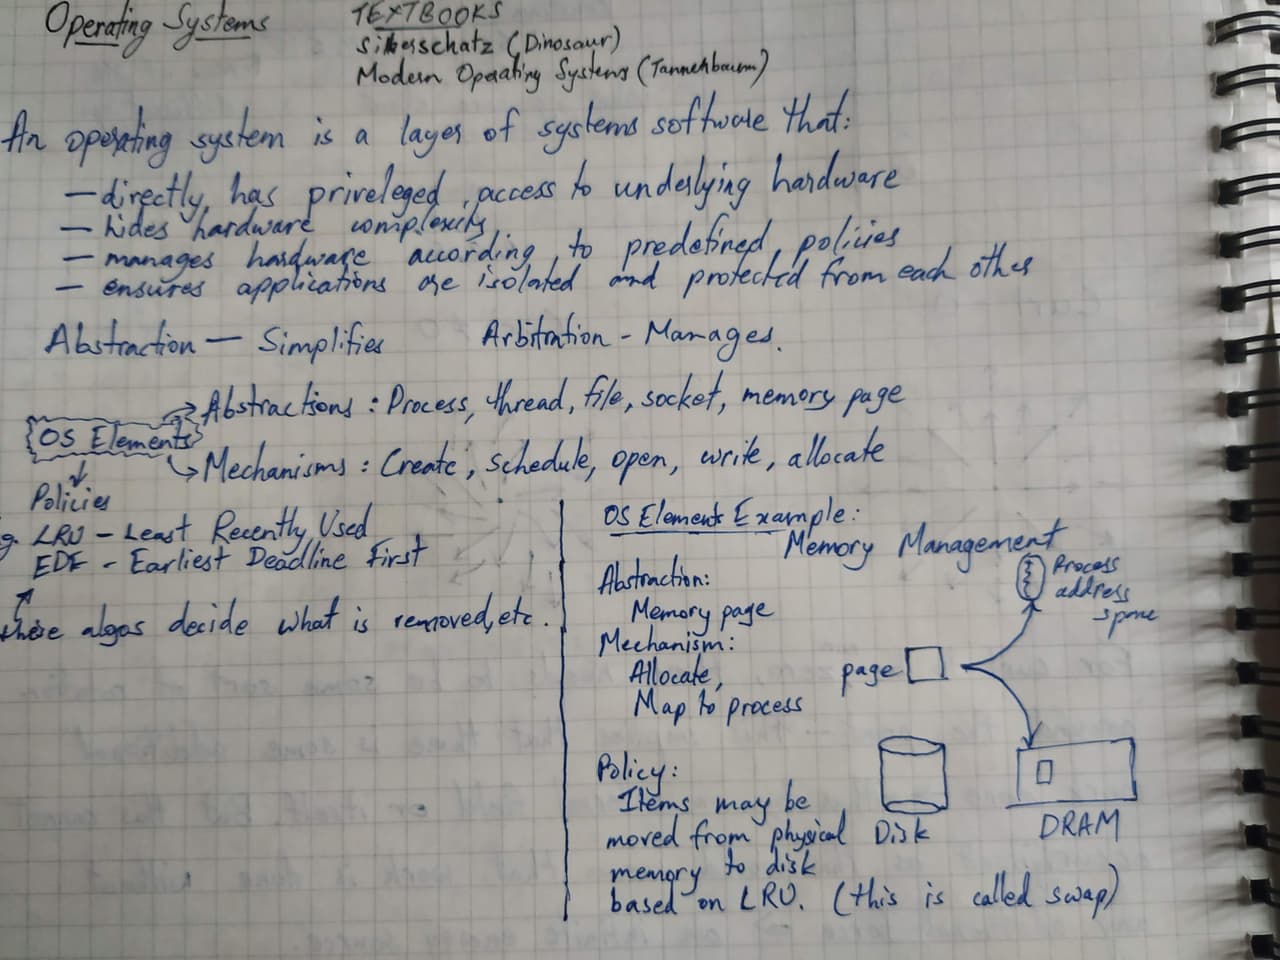 Operating Systems
TEXTBOOKS
Silberschatz (Dinosaur)
Modern Operating Systems (Tannehbaum)
An operating system is a layer of systems software that:
— directly has priveleged access to underlying hardware
— hides hardware complexity
— manages hardware according to predefined policies
— ensures applications are isolated and protected from each other
Abstraction — Simplifies Arbitration - Manages.
OS Elements
Abstractions : Process, thread, file, socket, memory page
Mechanisms : Create, schedule, open, write, allocate
Policies
LRU - Least Recently Used
EDF - Earliest Deadline First
these algos decide what is removed, etc.
OS Elements Example:
Memory Management
Abstraction:
Memory page
Mechanism:
Allocate,
Map to process
Policy:
Items may be
moved from physical
memory to disk
based on LRU. (this is called swap)
Process
address
space
page
Disk
DRAM